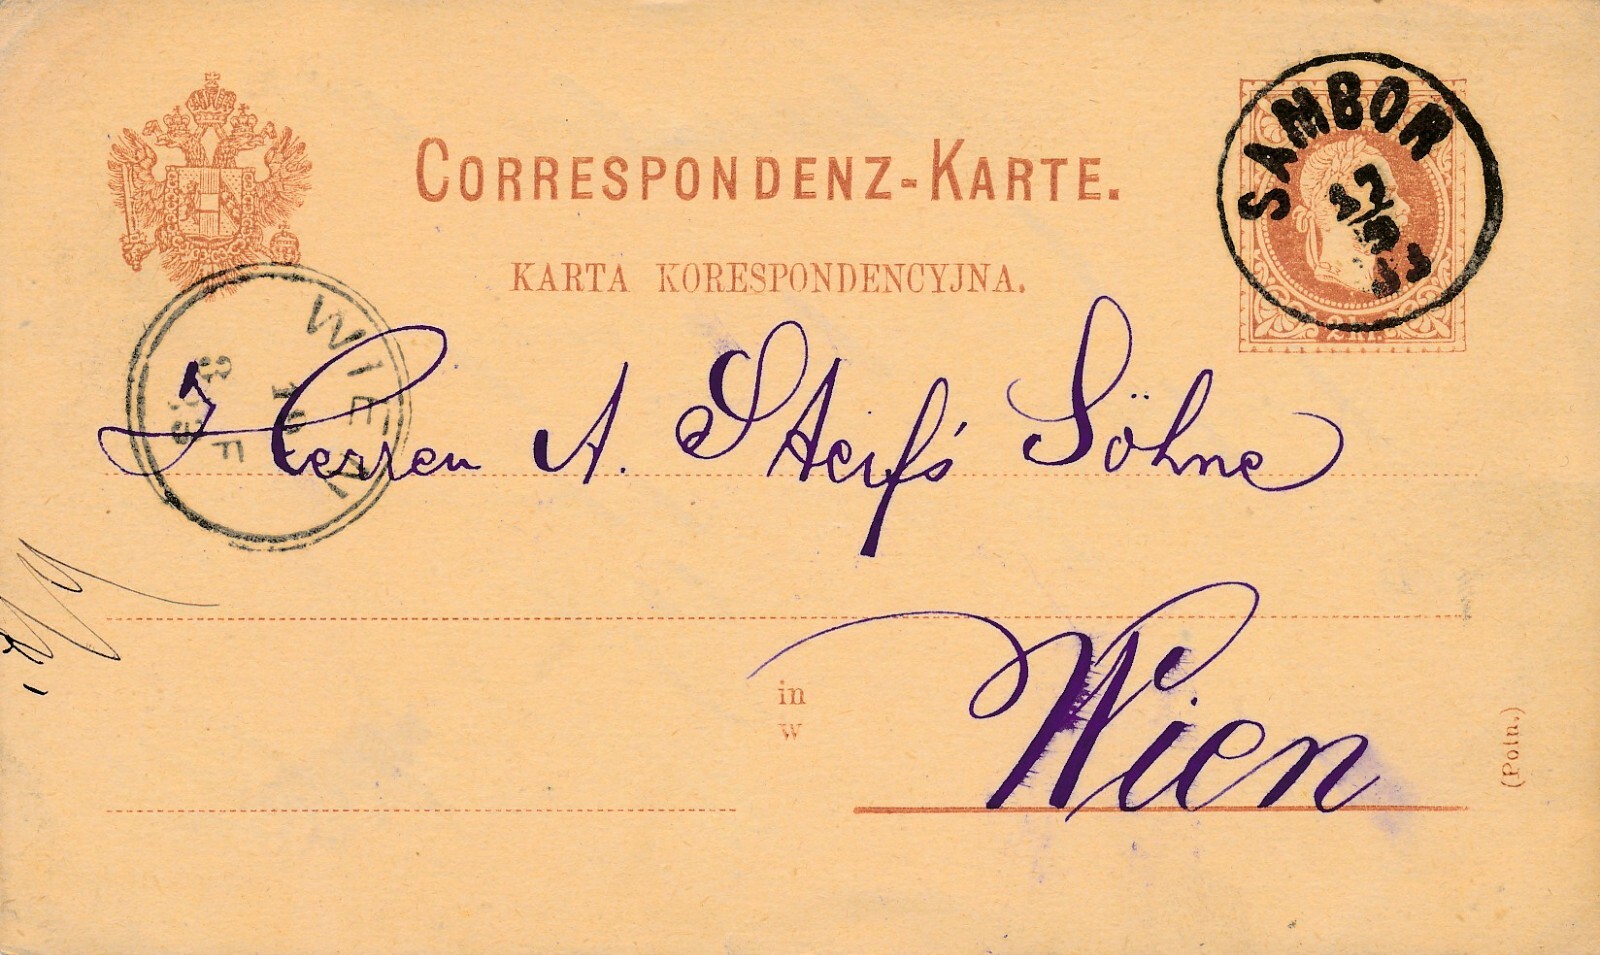 CORRESPONDENZ-KARTE.
KARTA KORESPONDENCYJNA.
SAMBOR
12
2 kr.
WIEN
Herren A. Sterf's Söhne
in
w
Wien
(Poln.)